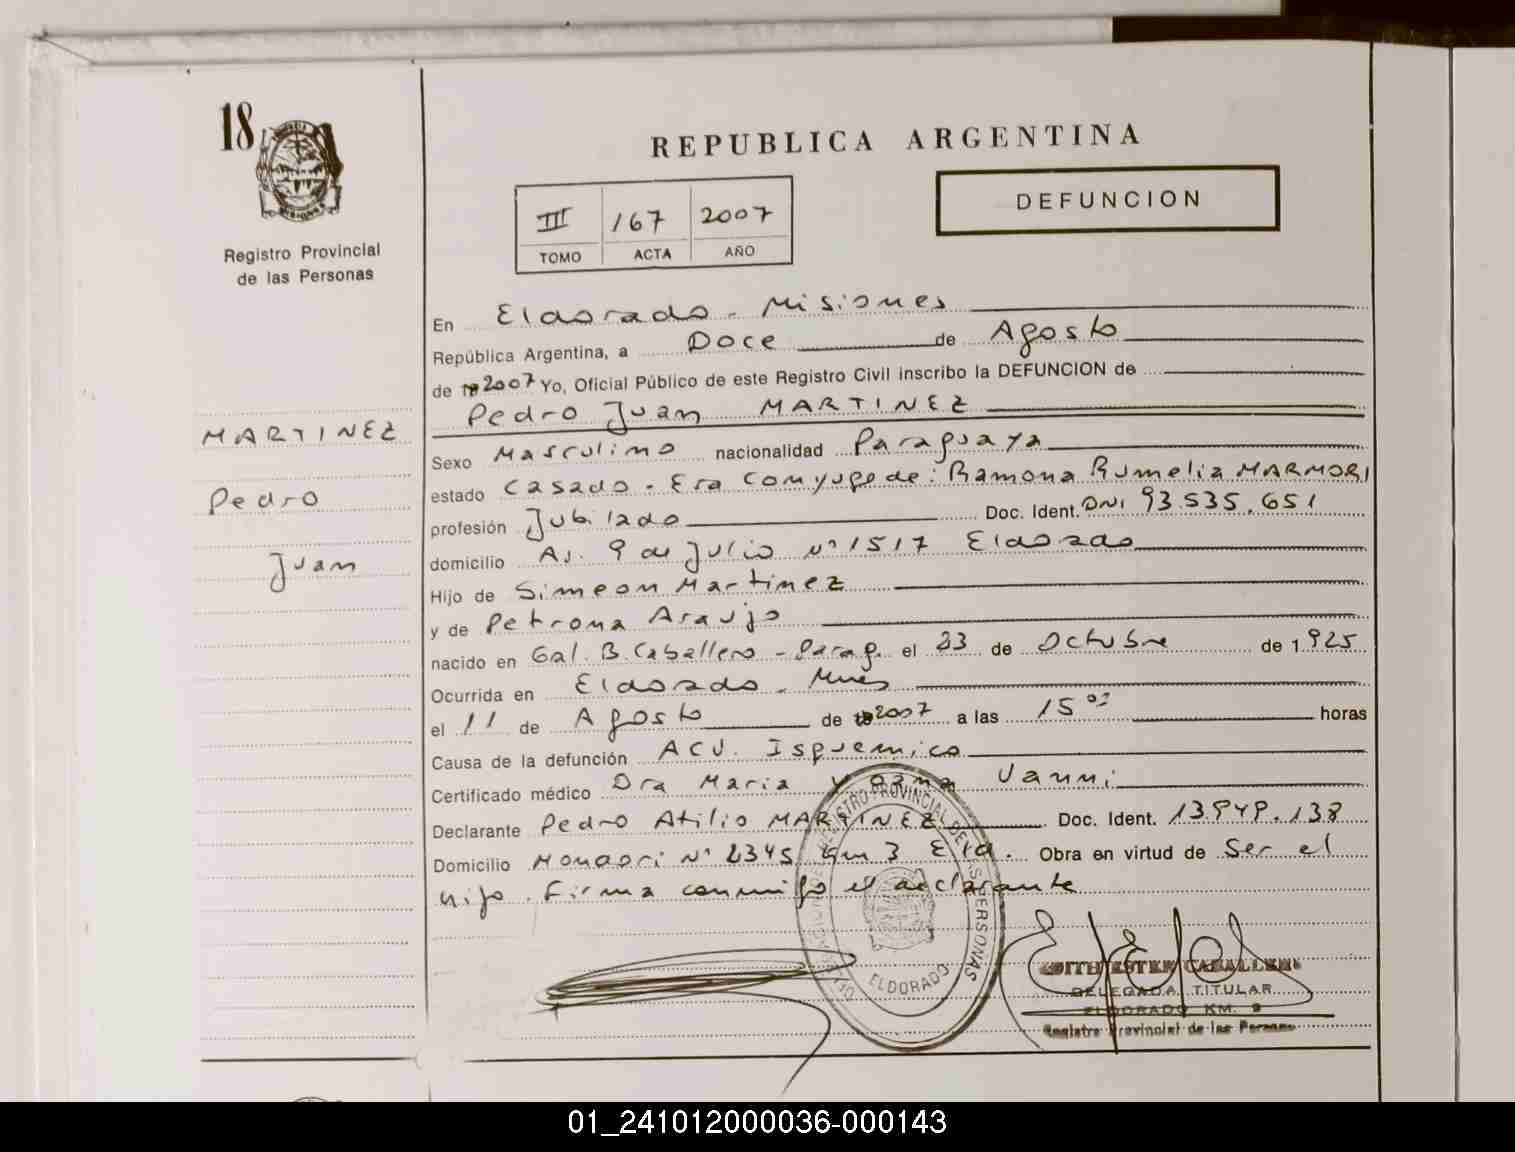 18
Registro Provincial
de las Personas
MARTINEZ
Pedro
Juan
REPUBLICA ARGENTINA
III 167 2007
TOMO ACTA AÑO
DEFUNCION
En Eldorado - Misiones
República Argentina, a Doce de Agosto
de 2007 Yo, Oficial Público de este Registro Civil inscribo la DEFUNCION de
Pedro Juan MARTINEZ
Sexo Masculino nacionalidad Paraguaya
estado Casado - Era Conyuge de: Ramona Rumelia MARMORI
profesión Jubilado Doc. Ident. DNI 93.535.651
domicilio Av. 9 de Julio Nº 1517 Eldorado
Hijo de Simeon Martinez
y de Petrona Araujo
nacido en Gal. B. Caballero - Parag. el 23 de Octubre de 1925
Ocurrida en Eldorado - Mnes
el 11 de Agosto de 2007 a las 15 horas
Causa de la defunción ACV. Isquemico
Certificado médico Dra Maria Vanni
Declarante Pedro Atilio MARTINEZ Doc. Ident. 13.949.138
Domicilio Nº 2345 Km 3 Eld. Obra en virtud de Ser el
hijo. Firma conmigo el declarante
REGISTRO PROVINCIAL DE LAS PERSONAS
ELDORADO
EDITH ESTER CABALLERO
DELEGADA TITULAR
ELDORADO KM. 9
Registro Provincial de las Personas
01_241012000036-000143